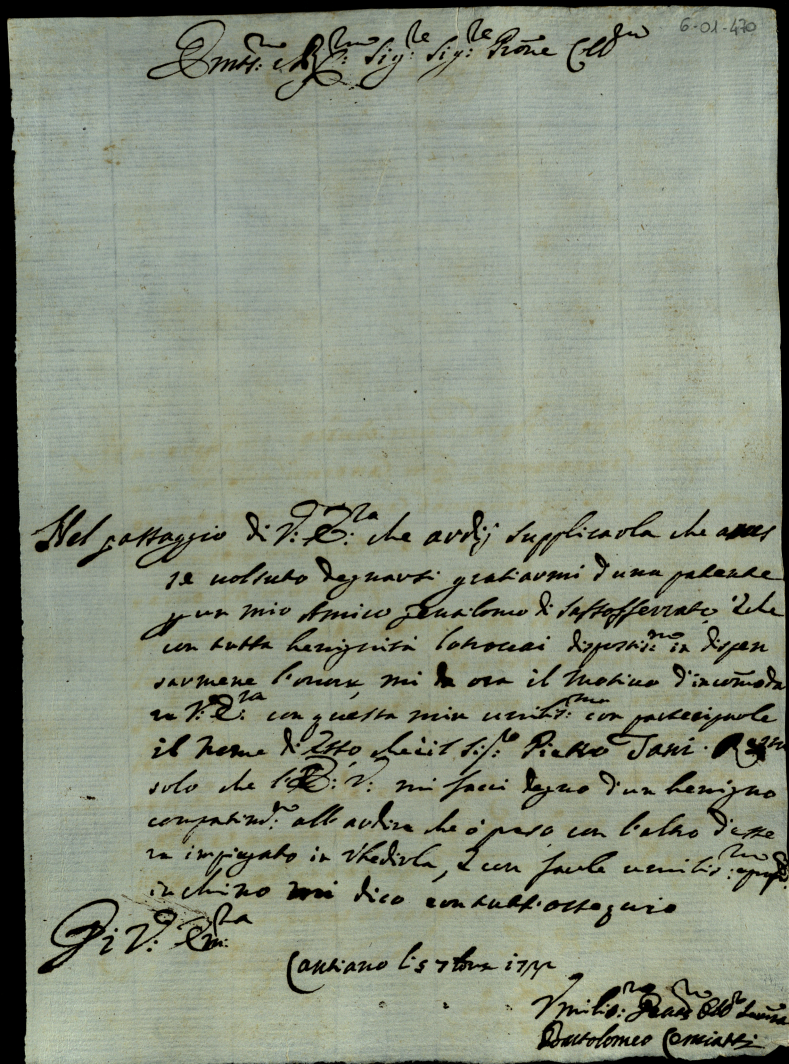 6-01-470
Emin.mo e R.mo Sig.re Sig.re Prone Coll.mo
Nel passaggio di V: E:za che ardij supplicarla che aves
se volsuto degnarsi gratiarmi d'una patente
p un mio Amico gentilomo di Sassoferrato, e che
con tutta benignità la trovai dispostis:mo in dispen
sarmene l'onore, mi da ora il motivo d'incõmoda
re V: E:za con questa mia umilis:ma con participarle
il Nome di esso che è il Sig:re Pietro Tani.
solo che l'E: V: mi facci degno d'un benigno
compatim:to all'ardire che ò preso con l'altro d'esse
re impiegato in ubedirla, e con farle umilis:mo
inchino mi dico con tutt'ossequio
Di V: Em:za
Cantiano li 5 7bre
Umilis:mo Devot:mo Obb:mo
Bartolomeo